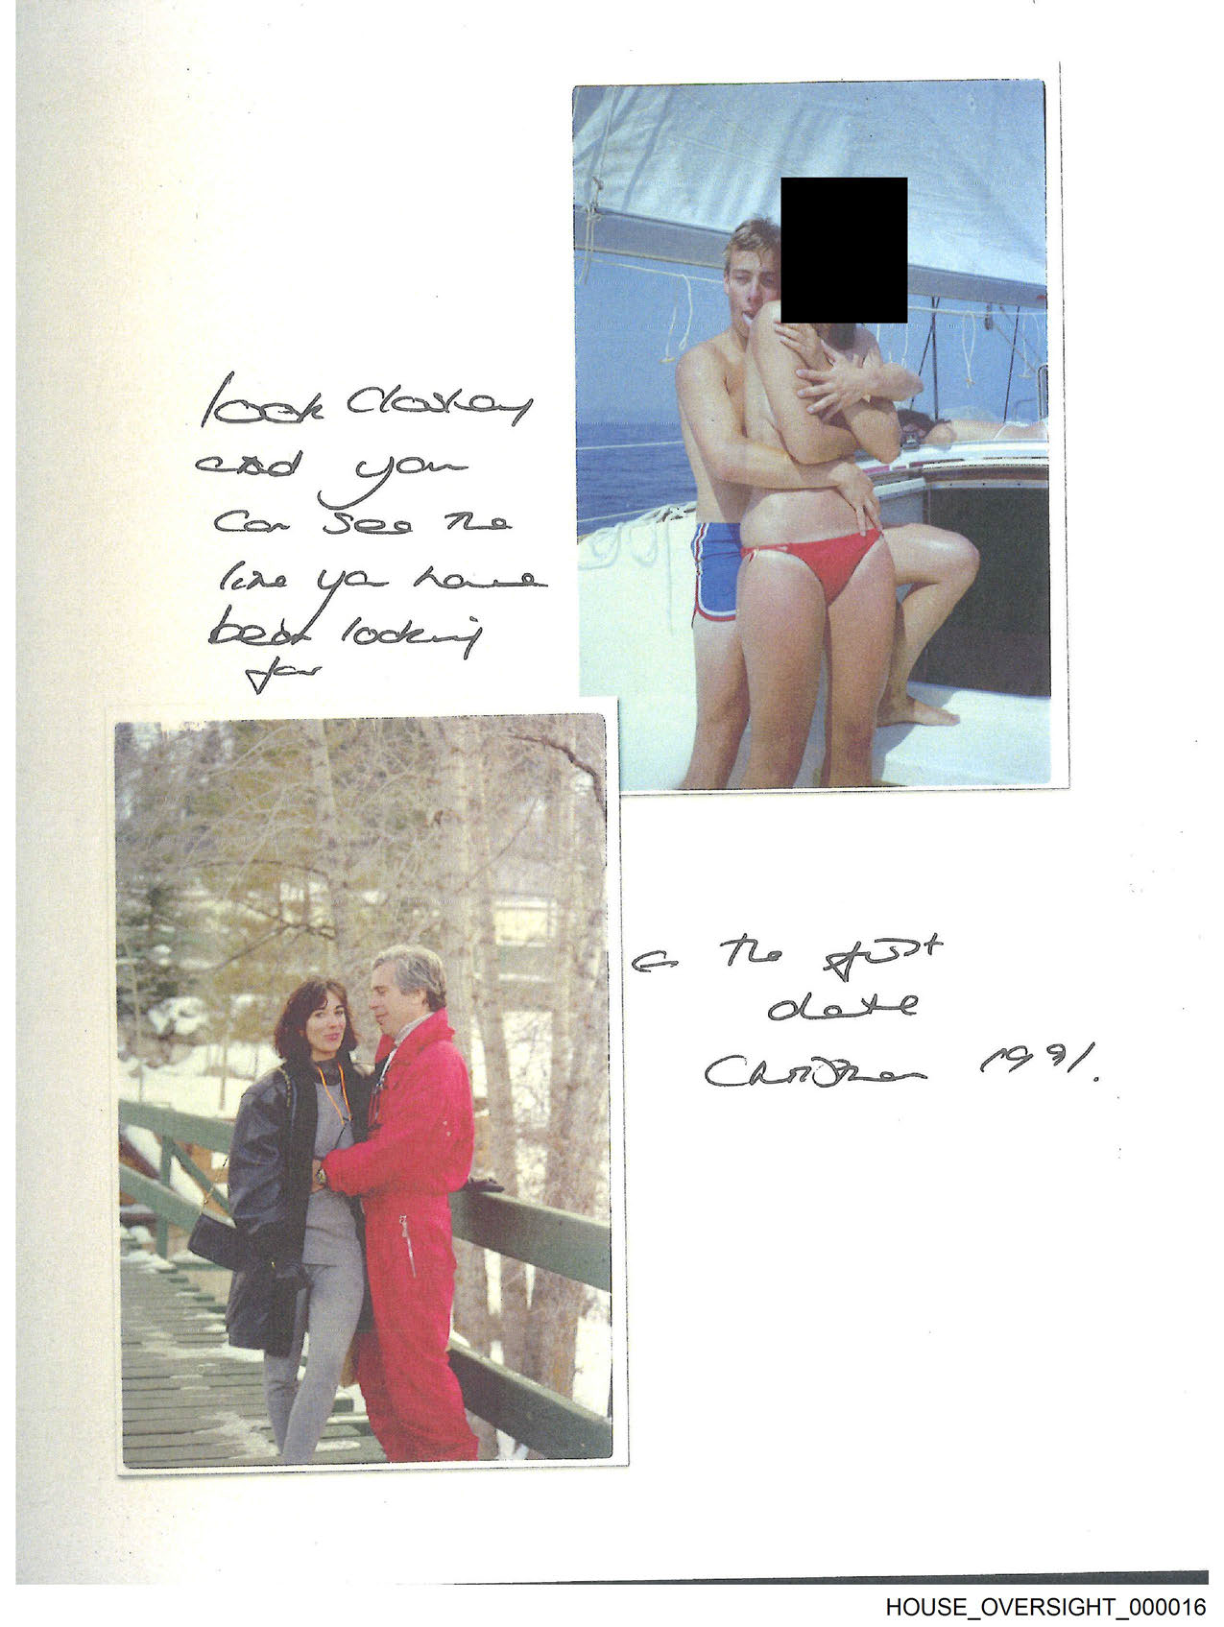 look closley
and you
can see the
line you have
been looking
for
the first
date
Christmas 1991.
HOUSE_OVERSIGHT_000016